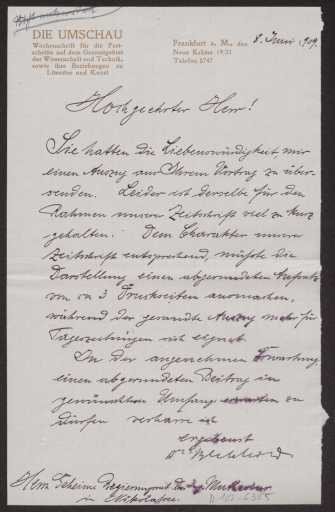 DIE UMSCHAU
Wochenschrift für die Fort-
schritte auf dem Gesamtgebiet
der Wissenschaft und Technik,
sowie ihre Beziehungen zu
Literatur und Kunst
Frankfurt a. M., den 8. Juni 1909.
Neue Kräme 19/21
Telefon 5747
Hochgeehrter Herr!
Sie hatten die Liebenswürdigkeit, mir
einen Auszug aus Ihrem Vortrag zu über-
senden. Leider ist derselbe für den
Rahmen unserer Zeitschrift viel zu kurz
gehalten. Dem Charakter unserer
Zeitschrift entsprechend, müsste die
Darstellung einen abgerundeten Aufsatz
von ca 3 Druckseiten ausmachen,
während der gesandte Auszug mehr für
Tageszeitungen sich eignet.
In der angenehmen Erwartung,
einen abgerundeten Beitrag im
gewünschten Umfang erwarten zu
dürfen verharre ich
ergebenst
Dr Bechhold
Herrn Geheimen Regierungsrat
in Nikolassee.